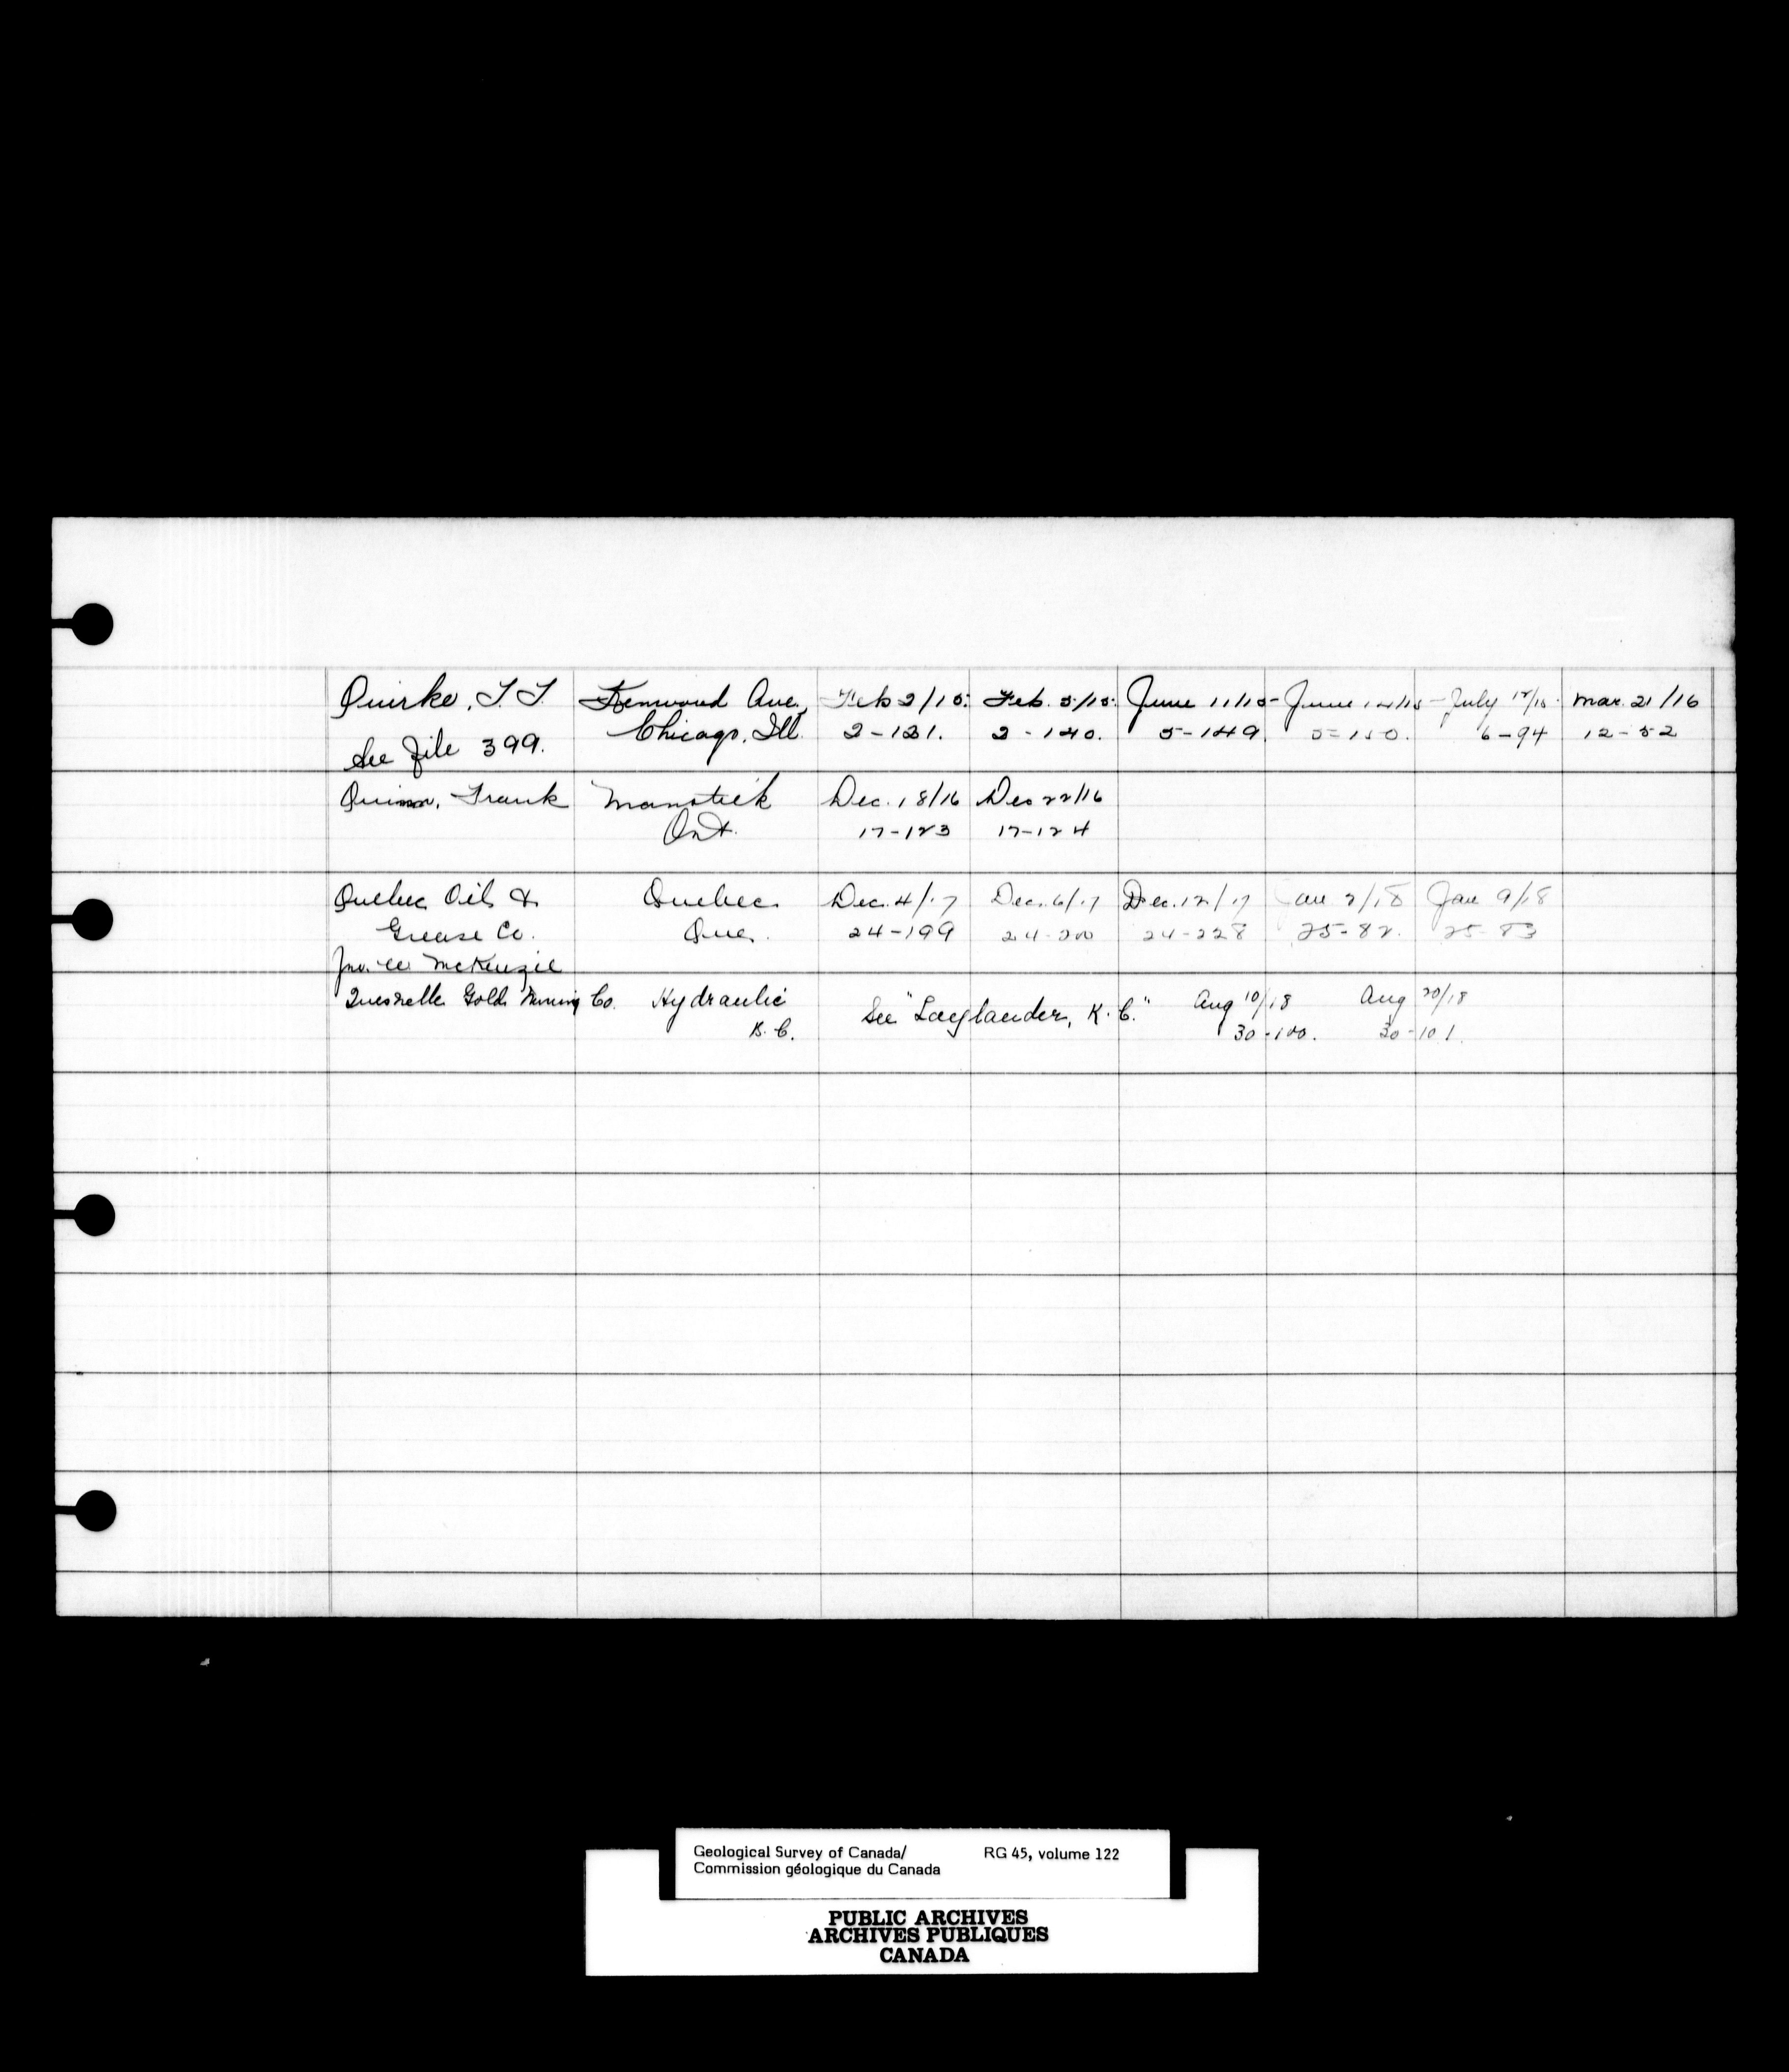 Quirke, T. T. Kenwood Ave., Feb 2/15. Feb. 5/15. June 11/15 June 14/15 July 12/15. Mar. 21/16
See File 399. Chicago, Ill. 2-131. 2-140. 5-149. 5-150. 6-94 12-52
Quinn, Frank Manotick Dec. 18/16 Dec 22/16
Ont. 17-123 17-124
Quebec Oil & Quebec Dec. 4/17 Dec. 6/17 Dec. 12/17 Jan 2/18 Jan 9/18
Grease Co. Que. 24-199 24-200 24-228 25-82. 25-83
Jno. W. McKenzie
Quesnelle Gold Mining Co. Hydraulic See "Laylander, K. C." Aug 10/18 Aug 20/18
B.C. 30-100. 30-101.
Geological Survey of Canada/ RG 45, volume 122
Commission géologique du Canada
PUBLIC ARCHIVES
ARCHIVES PUBLIQUES
CANADA